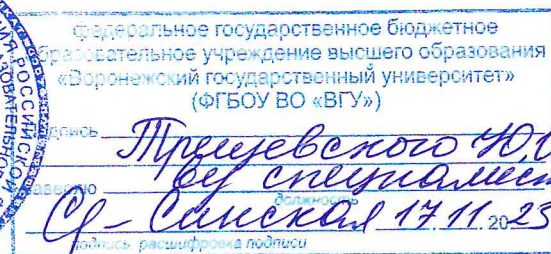 федеральное государственное бюджетное
образовательное учреждение высшего образования
«Воронежский государственный университет»
(ФГБОУ ВО «ВГУ»)
подпись Трещевского Ю.
заверяю вед специалист
должность
Санская 17.11.2023
подпись, расшифровка подписи
РОССИЙСКОЙ